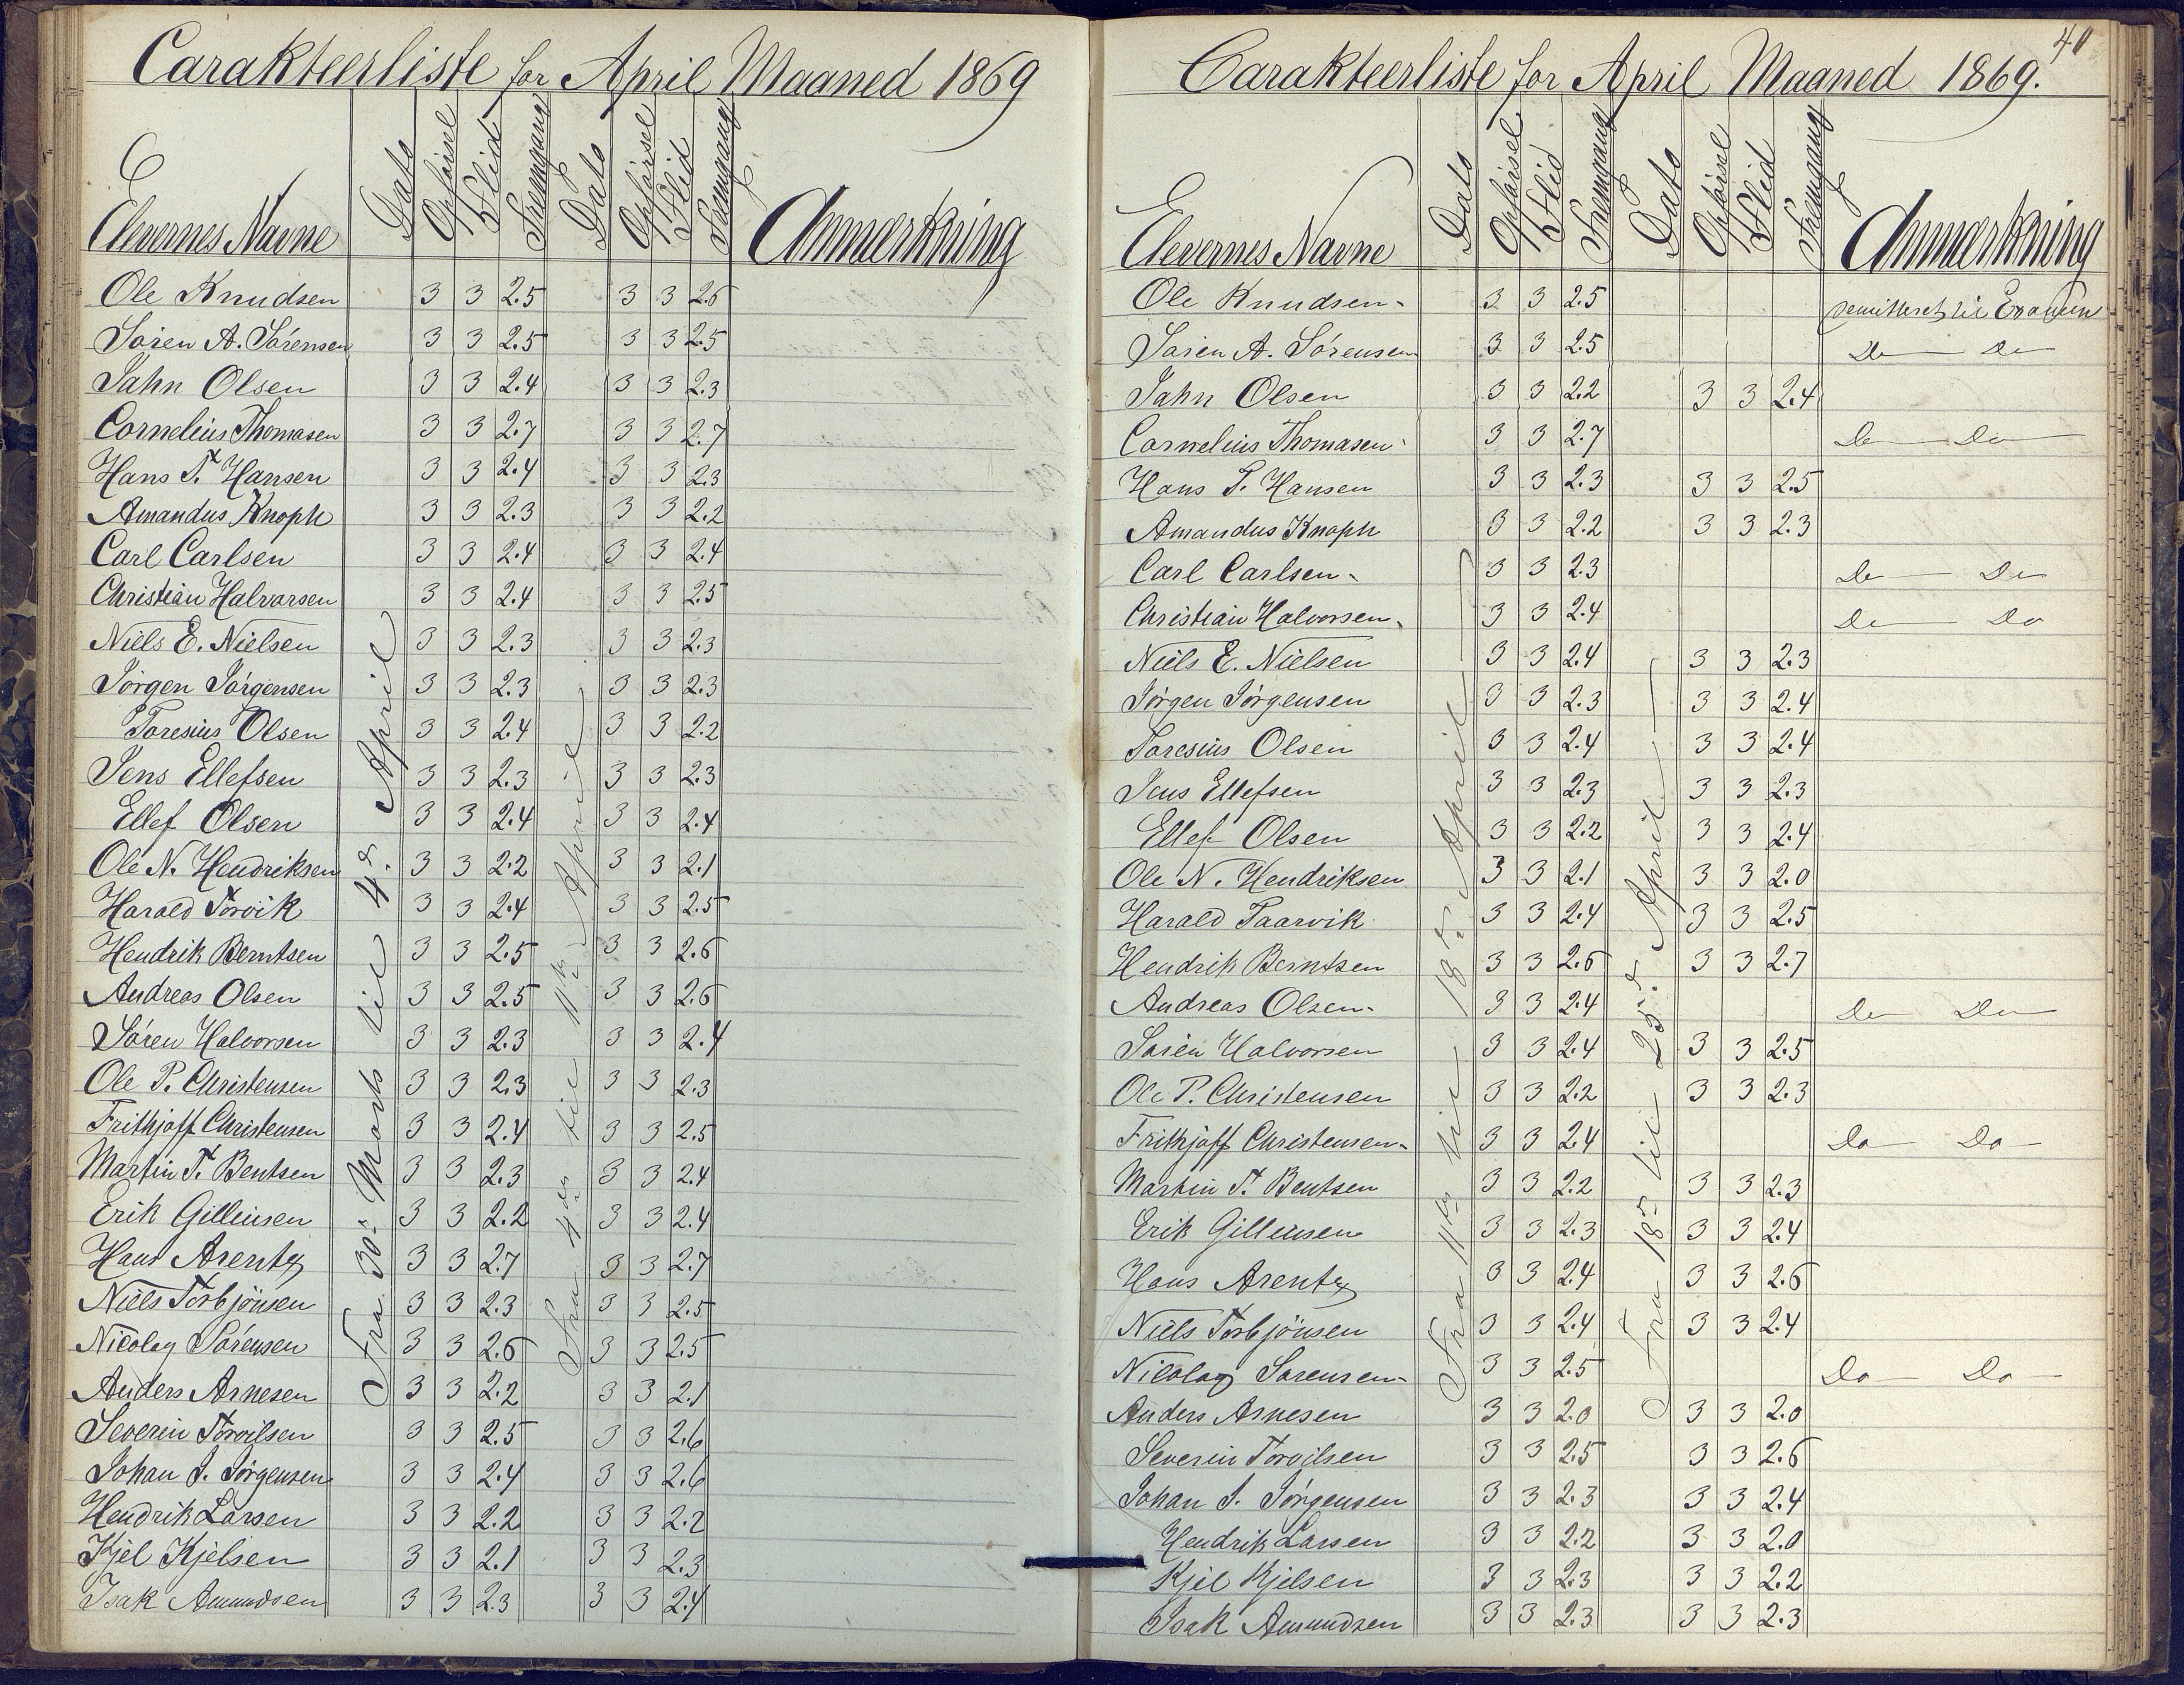 Carakteerliste for April Maaned 1869
Elevernes Navne Dato Opførsel Flid Fremgang Dato Opførsel Flid Fremgang Anmærkning
Fra 30. Marts til 4de April
Fra 4de til 11te April
Ole Knudsen 3 3 2.5 3 3 2.6
Søren A. Sørensen 3 3 2.5 3 3 2.5
Jahn Olsen 3 3 2.4 3 3 2.3
Cornelius Thomasen 3 3 2.7 3 3 2.7
Hans T. Hansen 3 3 2.4 3 3 2.3
Amandus Knoph 3 3 2.3 3 3 2.2
Carl Carlsen 3 3 2.4 3 3 2.4
Christian Halvorsen 3 3 2.4 3 3 2.5
Niels E. Nielsen 3 3 2.3 3 3 2.3
Jørgen Jørgensen 3 3 2.3 3 3 2.3
Toresius Olsen 3 3 2.4 3 3 2.2
Jens Ellefsen 3 3 2.3 3 3 2.3
Ellef Olsen 3 3 2.4 3 3 2.4
Ole N. Hendriksen 3 3 2.2 3 3 2.1
Harald Torvik 3 3 2.4 3 3 2.5
Hendrik Berntsen 3 3 2.5 3 3 2.6
Andreas Olsen 3 3 2.5 3 3 2.6
Søren Halvorsen 3 3 2.3 3 3 2.4
Ole P. Christensen 3 3 2.3 3 3 2.3
Frithjoff Christensen 3 3 2.4 3 3 2.5
Martin T. Bentsen 3 3 2.3 3 3 2.4
Erik Gilleusen 3 3 2.2 3 3 2.4
Hans Arentz 3 3 2.7 3 3 2.7
Niels Torbjönsen 3 3 2.3 3 3 2.5
Nicolay Sørensen 3 3 2.6 3 3 2.5
Anders Arnesen 3 3 2.2 3 3 2.1
Severin Torvilsen 3 3 2.5 3 3 2.6
Johan J. Jørgensen 3 3 2.4 3 3 2.6
Hendrik Larsen 3 3 2.2 3 3 2.2
Kjel Kjelsen 3 3 2.1 3 3 2.3
Isak Amundsen 3 3 2.3 3 3 2.4
40
Carakteerliste for April Maaned 1869.
Elevernes Navne Dato Opførsel Flid Fremgang Dato Opførsel Flid Fremgang Anmærkning
Fra 11te til 18de April
Fra 18de til 25de April
Ole Knudsen 3 3 2.5 demitteret til Examen
Søren A. Sørensen 3 3 2.5 Do Do
Jahn Olsen 3 3 2.2 3 3 2.4
Cornelius Thomasen 3 3 2.7 Do Do
Hans T. Hansen 3 3 2.3 3 3 2.5
Amandus Knoph 3 3 2.2 3 3 2.3
Carl Carlsen 3 3 2.3 Do Do
Christian Halvorsen 3 3 2.4 Do Do
Niels E. Nielsen 3 3 2.4 3 3 2.3
Jørgen Jørgensen 3 3 2.3 3 3 2.4
Toresius Olsen 3 3 2.4 3 3 2.4
Jens Ellefsen 3 3 2.3 3 3 2.3
Ellef Olsen 3 3 2.2 3 3 2.4
Ole N. Hendriksen 3 3 2.1 3 3 2.0
Harald Taarvik 3 3 2.4 3 3 2.5
Hendrik Berntsen 3 3 2.6 3 3 2.7
Andreas Olsen 3 3 2.4 Do Do
Søren Halvorsen 3 3 2.4 3 3 2.5
Ole P. Christensen 3 3 2.2 3 3 2.3
Frithjoff Christensen 3 3 2.4 Do Do
Martin T. Bentsen 3 3 2.2 3 3 2.3
Erik Gilleusen 3 3 2.3 3 3 2.4
Hans Arentz 3 3 2.4 3 3 2.6
Niels Torbjönsen 3 3 2.4 3 3 2.4
Nicolay Sørensen 3 3 2.5 Do Do
Anders Arnesen 3 3 2.0 3 3 2.0
Severin Torvilsen 3 3 2.5 3 3 2.6
Johan J. Jørgensen 3 3 2.3 3 3 2.4
Hendrik Larsen 3 3 2.2 3 3 2.0
Kjel Kjelsen 3 3 2.3 3 3 2.2
Isak Amundsen 3 3 2.3 3 3 2.3